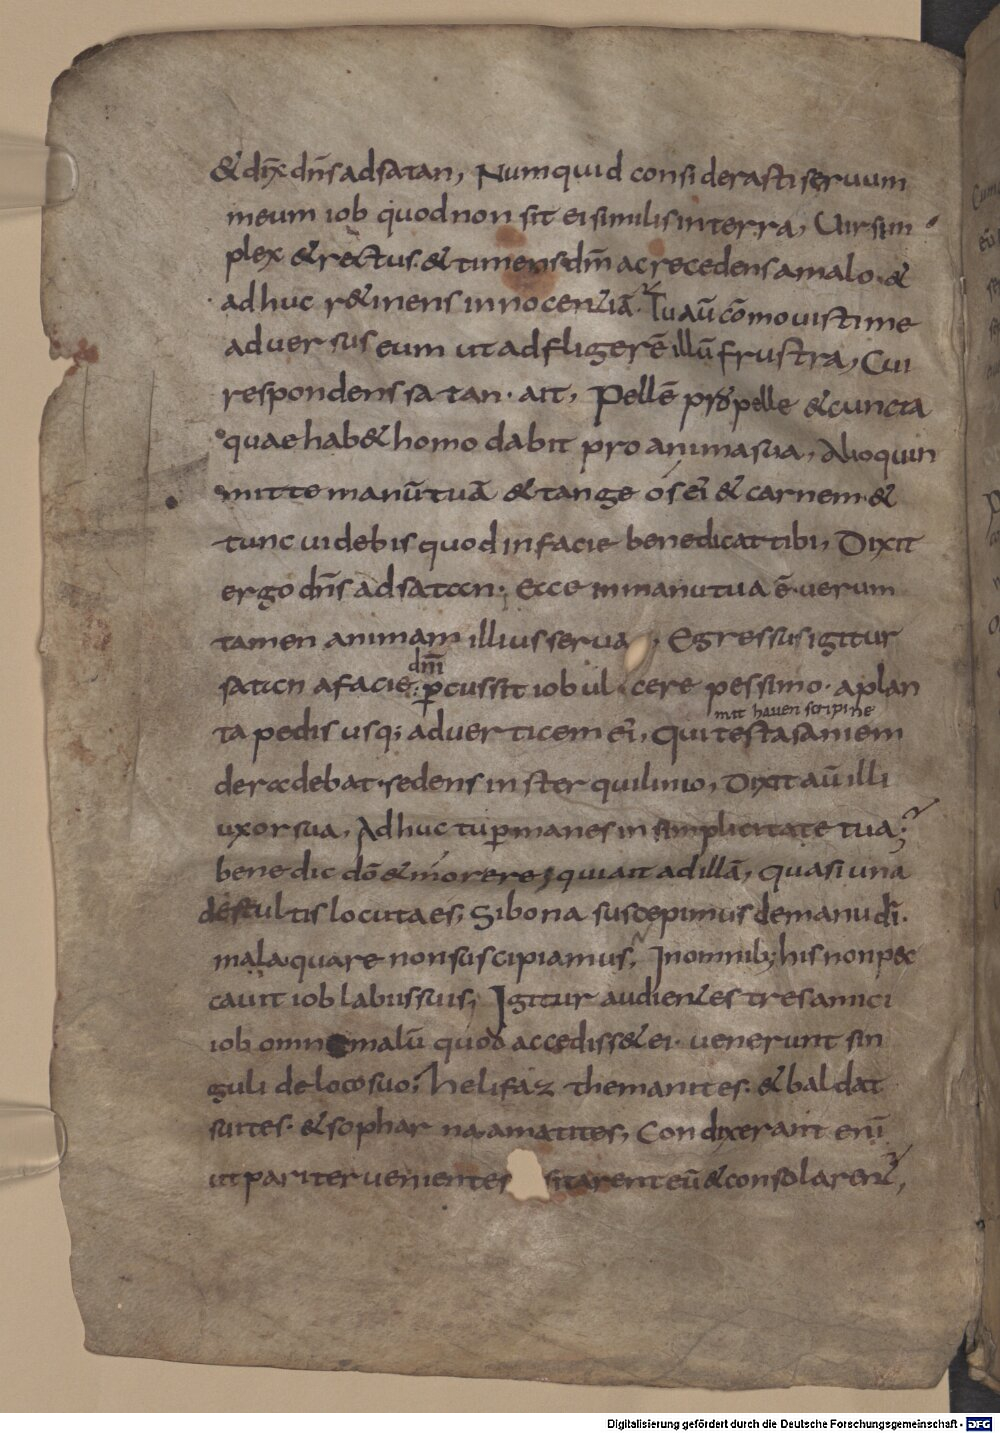 & dix̄ dn̄s ad satan, Numquid considerasti seruum
meum iob quod non sit ei similis in terra, Uir sim
plex & rectus. & timens dm̄ ac recedens a malo. &
adhuc r&inens innocentiā. Tu aū cōmouisti me
aduersus eum ut adfligerē illū frustra, Cui
respondens satan. ait, Pellē pro pelle & cuncta
quae hab& homo dabit pro anima sua, Alioquin
mitte manū tuā & tange os ei' & carnem. &
tunc uidebis quod in facie benedicat tibi, Dixit
ergo dn̄s ad satan. Ecce in manu tua ē. uerum
tamen animam illius serua, Egressus igitur
satan a facie dn̄i
p̱cussit iob ulcere pessimo. a plan
mit hauen scirpine
ta pedis usq; ad uerticem ei', Qui testa saniem
deradebat. sedens in sterquilinio, Dixit aū illi
uxor sua, Adhuc tu p̱manes in simplicitate tua;
benedic dō & morere; qui ait ad illā, quasi una
de stultis locuta es, Si bona suscepimus de manu dī.
mala quare non suscipiamus, In omnib; his non pec
cauit iob labiis suis, Igitur audientes tres amici
iob omne malū quod accediss& ei. uenerunt sin
guli de loco suo; helifaz themanites. & baldat
suites. & sophar naamatites, Condixerant enī
ut pariter uenientes sitarent eū & consolarent',
Digitalisierung gefördert durch die Deutsche Forschungsgemeinschaft - DFG